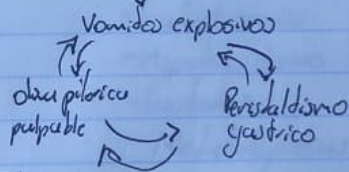 Vomidos explosivos
oliva pilorica
palpable
Peristaldismo
gastrico